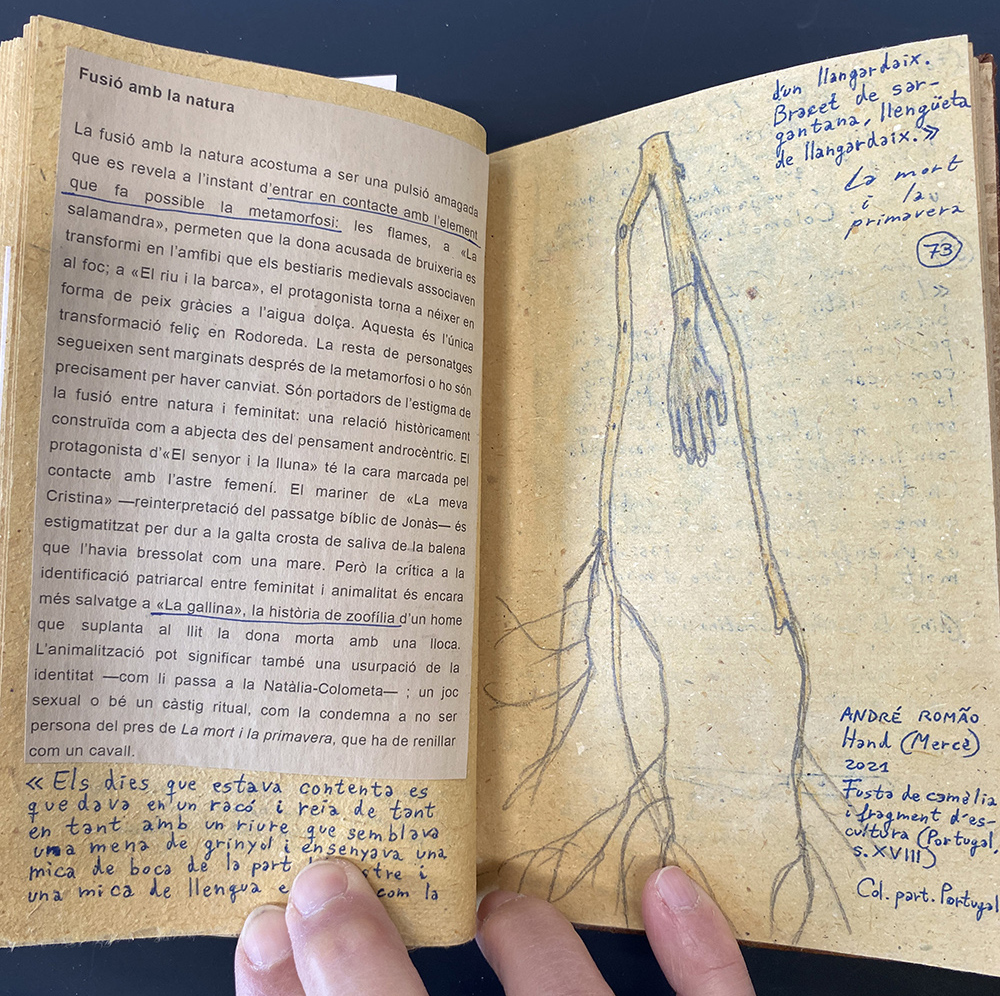 Fusió amb la natura
La fusió amb la natura acostuma a ser una pulsió amagada
que es revela a l'instant d'entrar en contacte amb l'element
que fa possible la metamorfosi: les flames, a «La
salamandra», permeten que la dona acusada de bruixeria es
transformi en l'amfibi que els bestiaris medievals associaven
al foc; a «El riu i la barca», el protagonista torna a néixer en
forma de peix gràcies a l'aigua dolça. Aquesta és l'única
transformació feliç en Rodoreda. La resta de personatges
segueixen sent marginats després de la metamorfosi o ho són
precisament per haver canviat. Són portadors de l'estigma de
la fusió entre natura i feminitat: una relació històricament
construïda com a abjecta des del pensament androcèntric. El
protagonista d'«El senyor i la lluna» té la cara marcada pel
contacte amb l'astre femení. El mariner de «La meva
Cristina» —reinterpretació del passatge bíblic de Jonàs— és
estigmatitzat per dur a la galta crosta de saliva de la balena
que l'havia bressolat com una mare. Però la crítica a la
identificació patriarcal entre feminitat i animalitat és encara
més salvatge a «La gallina», la història de zoofília d'un home
que suplanta al llit la dona morta amb una lloca.
L'animalització pot significar també una usurpació de la
identitat —com li passa a la Natàlia-Colometa— ; un joc
sexual o bé un càstig ritual, com la condemna a no ser
persona del pres de La mort i la primavera, que ha de renillar
com un cavall.
« Els dies que estava contenta es
quedava en un racó i reia de tant
en tant amb un riure que semblava
una mena de grinyol i ensenyava una
mica de boca de la part
una mica de llengua com la
d'un llangardaix.
Bracet de sar-
gantana, llengüeta
de llangardaix. »
La mort
i la
primavera
73
ANDRÉ ROMÃO
Hand (Mercè)
2021
Fusta de camèlia
i fragment d'es-
cultura (Portugal,
s. XVIII)
Col. part. Portugal